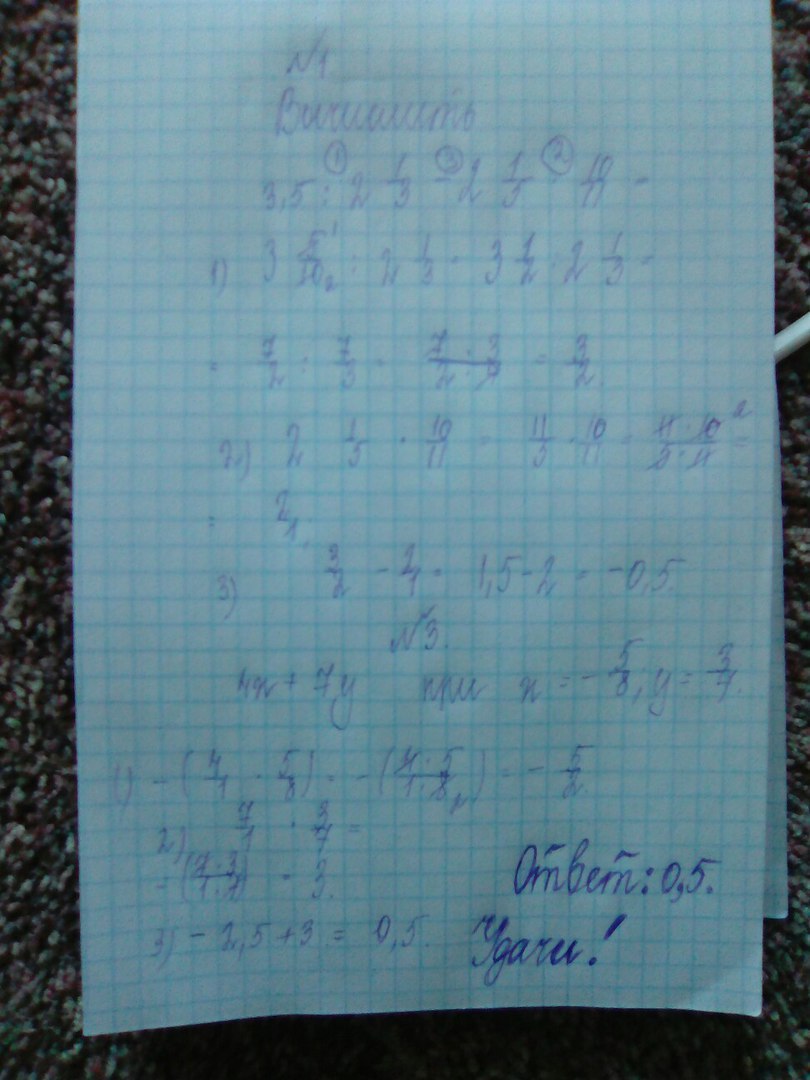 №1
Вычислить
① ③ ②
3,5 : 2 1/3 - 2 1/5 · 10/11 =
1) 3 5/10 : 2 1/3 = 3 1/2 : 2 1/3 =
= 7/2 : 7/3 = 7·3/2·7 = 3/2.
2) 2 1/5 · 10/11 = 11/5 · 10/11 = 11·10/5·11 =
= 2/1.
3) 3/2 - 2/1 = 1,5 - 2 = -0,5.
№3.
4x + 7y при x = -5/8, y = 3/7.
1) -(4/1 · 5/8) = -(4·5/1·8) = -5/2
2) 7/1 · 3/7 =
= (7·3/1·7) = 3.
3) -2,5 + 3 = 0,5.
Ответ: 0,5.
Удачи!